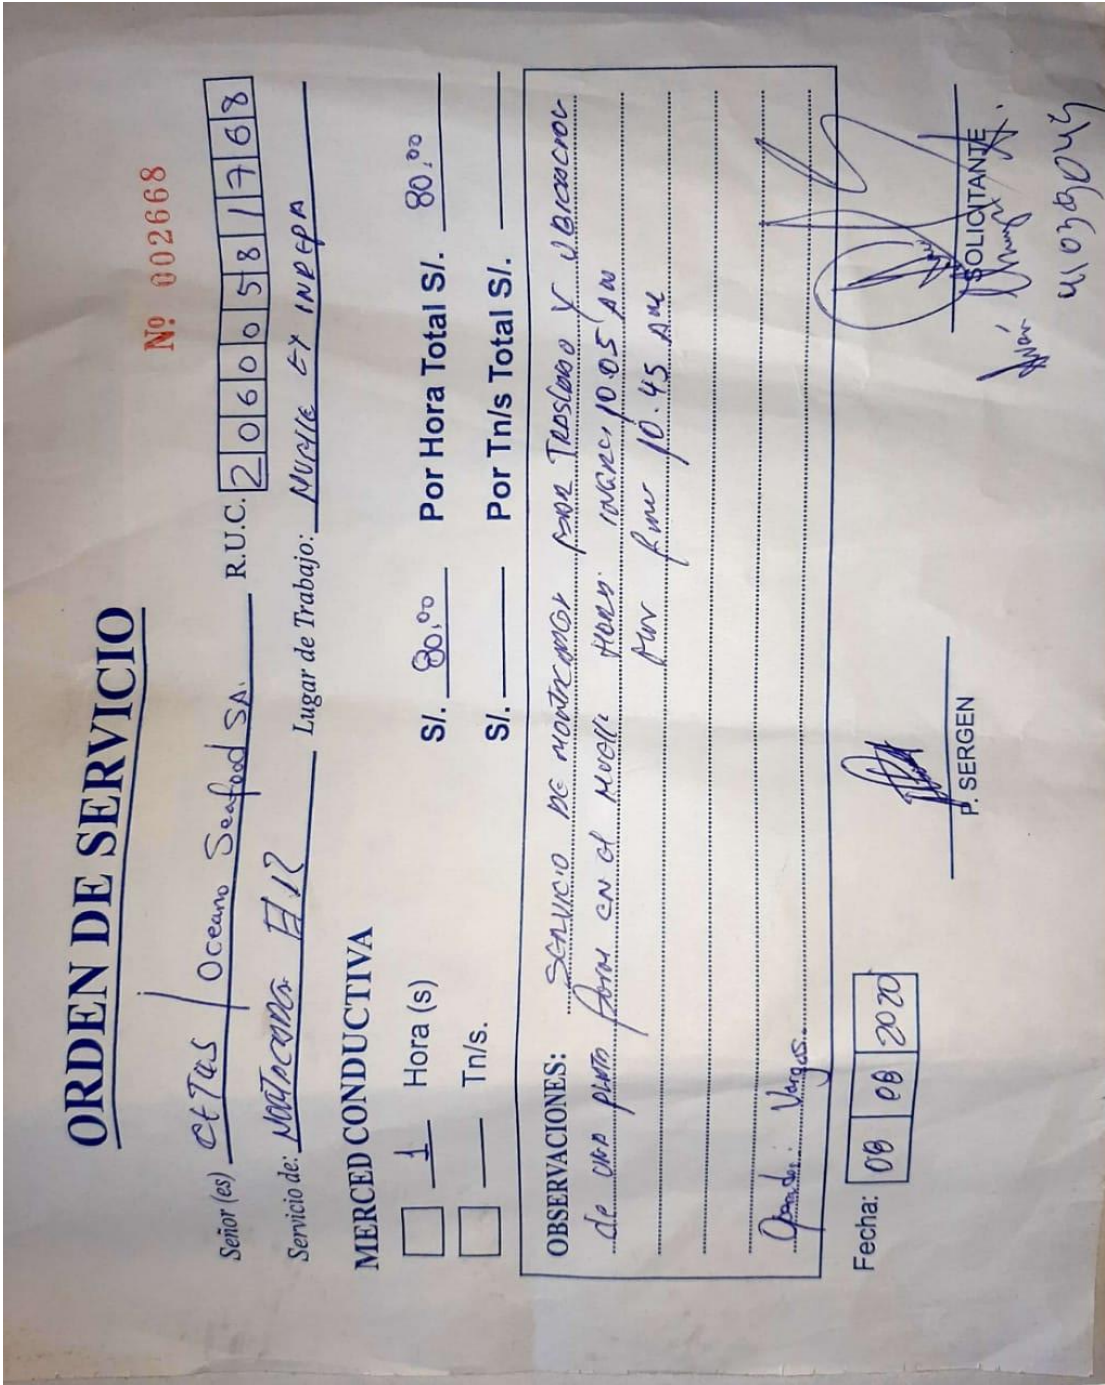 ORDEN DE SERVICIO
Nº 002668
Señor (es) / Oceano Seafood SA. R.U.C. 20600581768
Servicio de: Lugar de Trabajo: Muelle Ex INREPA
MERCED CONDUCTIVA
1 Hora (s) S/. 80.00 Por Hora Total S/. 80.00
Tn/s. S/. Por Tn/s Total S/.
OBSERVACIONES: SERVICIO DE MONTACARGA POR TRASLADO Y
de una PLATA form en el Muelle HORA: 10.05 AM
10.45 AM
Operador: Vargas.
Fecha: 08 08 2020
P. SERGEN
SOLICITANTE
Iván
41039045